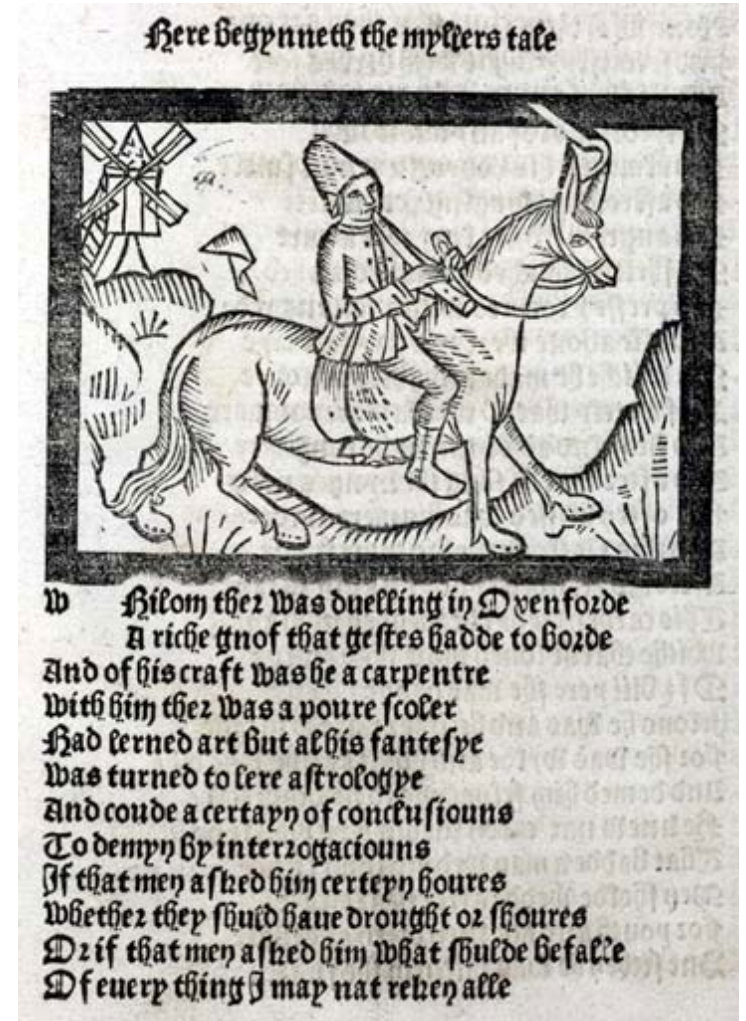 Here begynneth the myllers tale
w Hilom ther was duelling in Oxenforde
A riche gnof that gestes hadde to borde
And of his craft was he a carpentre
With him ther was a poure scoler
Had lerned art but al his fantesye
Was turned to lere astrologye
And coude a certayn of conclusiouns
To demyn by interrogaciouns
If that men asked him certeyn houres
Whether they shuld haue drought or shoures
Or if that men asked him what shulde befalle
Of euery thing I may nat reken alle